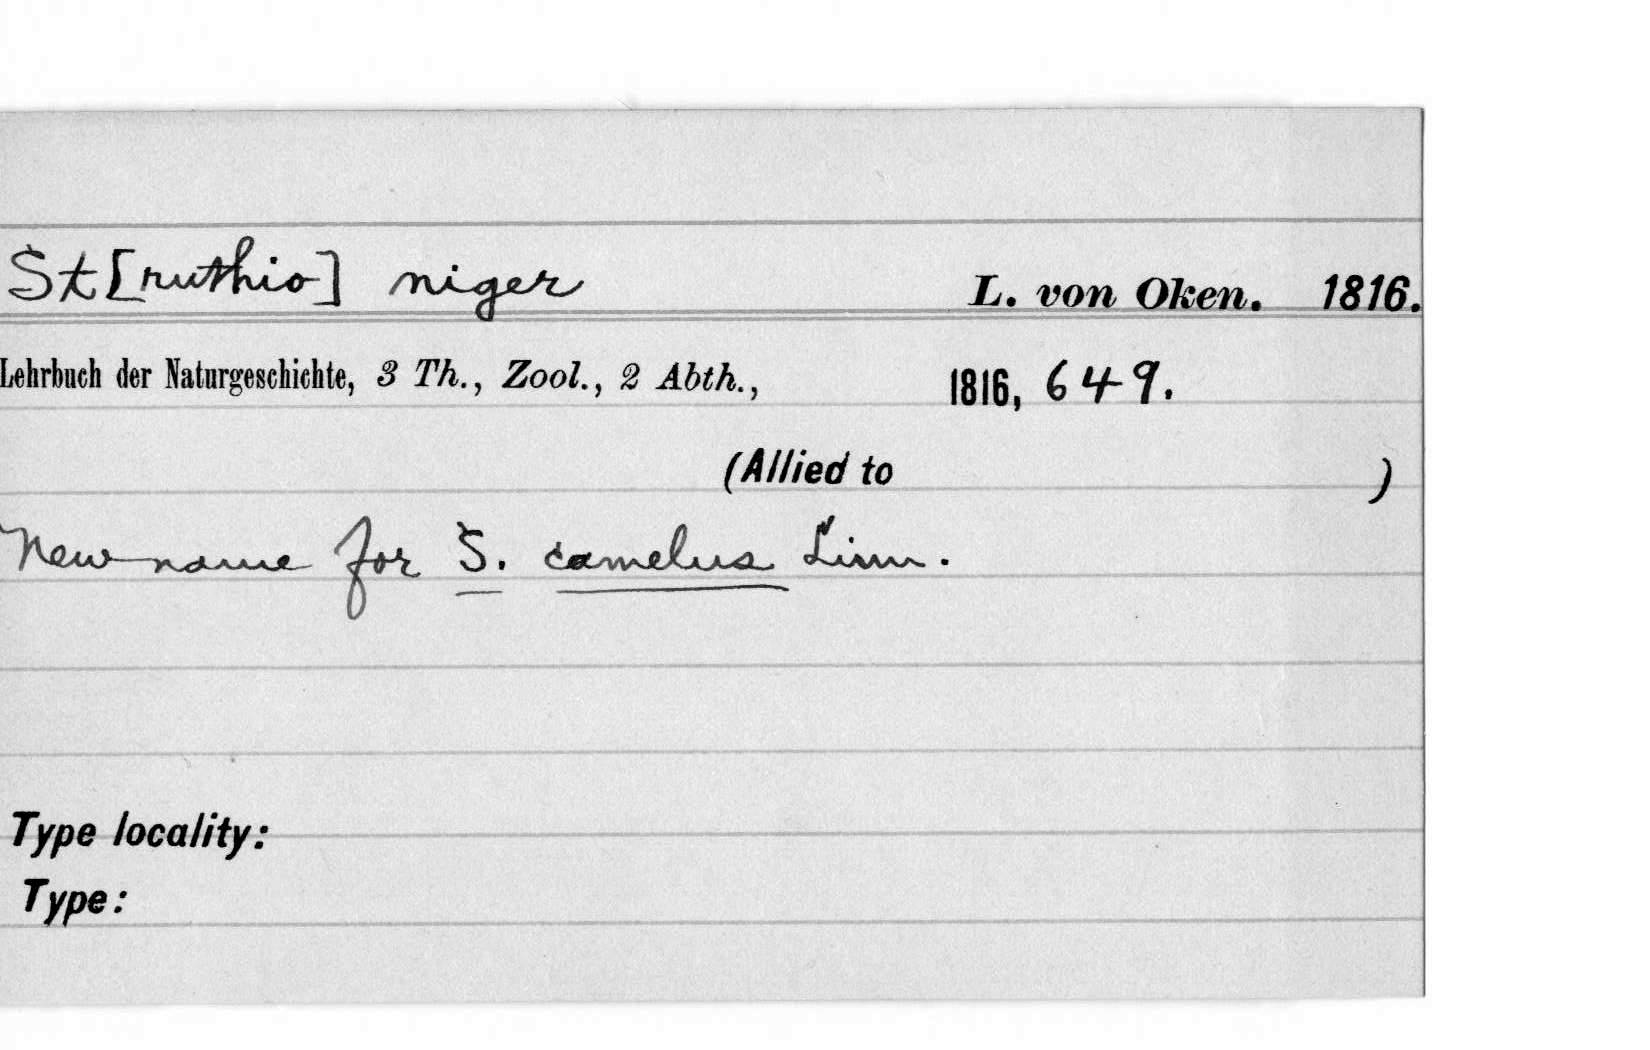 St[ruthio] niger L. von Oken. 1816.
Lehrbuch der Naturgeschichte, 3 Th., Zool., 2 Abth., 1816, 649.
(Allied to )
New name for S. camelus Linn.
Type locality:
Type: